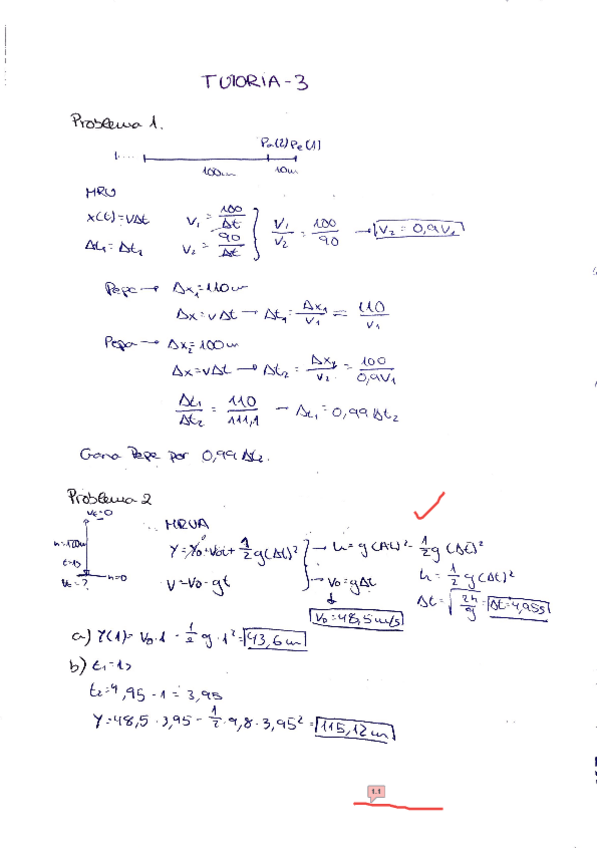 TUTORIA-3
Problema 1.
Pa(2) Pe(1)
100m 10m
MRU
x(t)=vΔt v₁ = 100/Δt v₁/v₂ = 100/90 → v₂ = 0,9v₁
Δt₁ = Δt₂ v₂ = 90/Δt
Pepe → Δx₁ = 110m
Δx = vΔt → Δt₁ = Δx₁/v₁ = 110/v₁
Pepa → Δx₂ = 100m
Δx = vΔt → Δt₂ = Δx₂/v₂ = 100/0,9v₁
Δt₁/Δt₂ = 110/111,1 → Δt₁ = 0,99 Δt₂
Gana Pepe por 0,99 Δt₂.
Problema 2
MRUA
h=0
v=v₀-gt → v₀=gΔt
h = 1/2 g(Δt)²
Δt = √2h/g = Δt=4,95s
v₀=48,5m/s
a) Y(1) = v₀·1 - 1/2 g·1² = 43,6m
b) t₁=1s
t₂=4,95-1 = 3,95
Y=48,5·3,95 - 1/2·9,8·3,95² = 115,12m
1.1